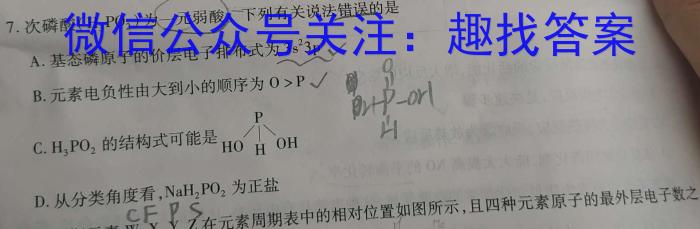 7. 次磷酸(H₃PO₂)为一元弱酸,下列有关说法错误的是
微信公众号关注:趣找答案
A. 基态磷原子的价层电子排布式为3s²3p
B. 元素电负性由大到小的顺序为 O>P ✓
O
P-OH
H
C. H₃PO₂ 的结构式可能是
P
HO H OH
D. 从分类角度看,NaH₂PO₂ 为正盐
C F P S
W、X、Y、Z 在元素周期表中的相对位置如图所示,且四种元素原子的最外层电子数之